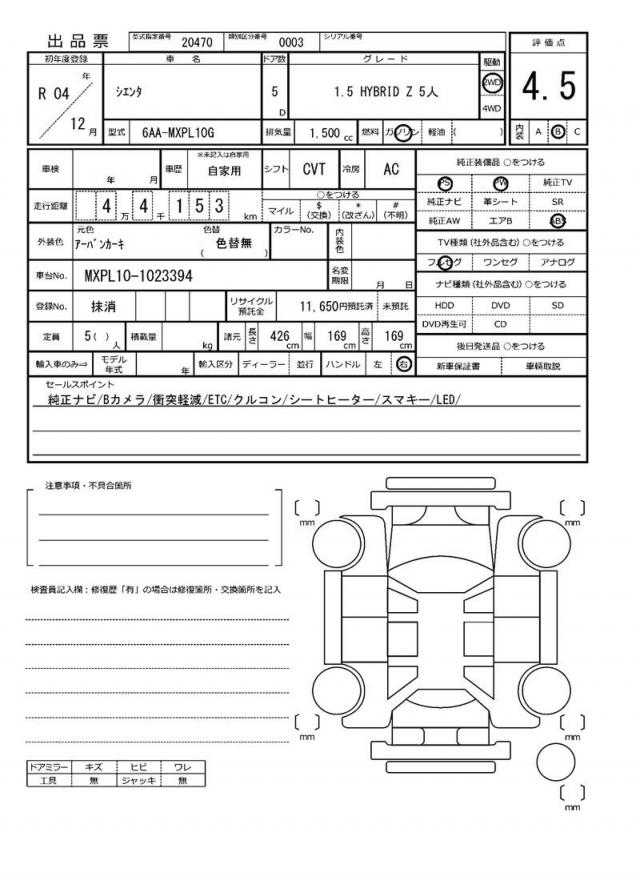 出品票 型式指定番号 20470 類別区分番号 0003 シリアル番号
評価点
初年度登録 車名 ドア数 グレード 駆動
R 04 年 12 月 シエンタ 5 D 1.5 HYBRID Z 5人 2WD 4WD
4.5
型式 6AA-MXPL10G 排気量 1,500 cc 燃料 ガソリン 軽油 ( ) 内装 A B C
車検 年 月 車歴 ※未記入は自家用 自家用 シフト CVT 冷房 AC
純正装備品 ○をつける
PS PW 純正TV
走行距離 4 万 4 千 1 5 3 km ○をつける
マイル $ (交換) * (改ざん) # (不明)
純正ナビ 革シート SR
純正AW エアB ABS
外装色 元色 アーバンカーキ 色替 ( 色替無 ) カラーNo. 内装色
TV種類 (社外品含む) ○をつける
フルセグ ワンセグ アナログ
車台No. MXPL10-1023394 名変期限 月 日
ナビ種類 (社外品含む) ○をつける
登録No. 抹消 リサイクル預託金 11,650円預託済 未預託
HDD DVD SD
DVD再生可 CD
定員 5( ) 人 積載量 kg 諸元 長さ 426 cm 幅 169 cm 高さ 169 cm
後日発送品 ○をつける
輸入車のみ⇒ モデル年式 年 輸入区分 ディーラー 並行 ハンドル 左 右
新車保証書 車輌取説
セールスポイント
純正ナビ/Bカメラ/衝突軽減/ETC/クルコン/シートヒーター/スマキー/LED/
注意事項・不具合箇所
mm mm
検査員記入欄:修復歴「有」の場合は修復箇所・交換箇所を記入
mm mm
ドアミラー キズ ヒビ ワレ
工具 無 ジャッキ 無
mm